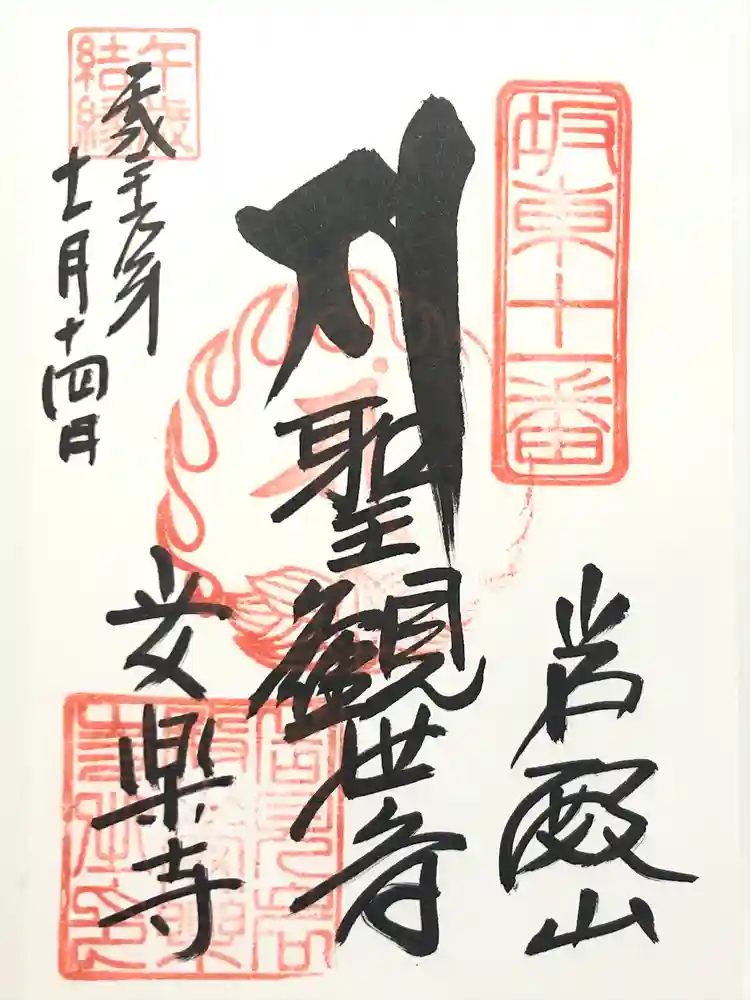 坂東十一番
岩殿山
聖観世音
午歳
結縁
平成二十六年
十一月十四日
安楽寺